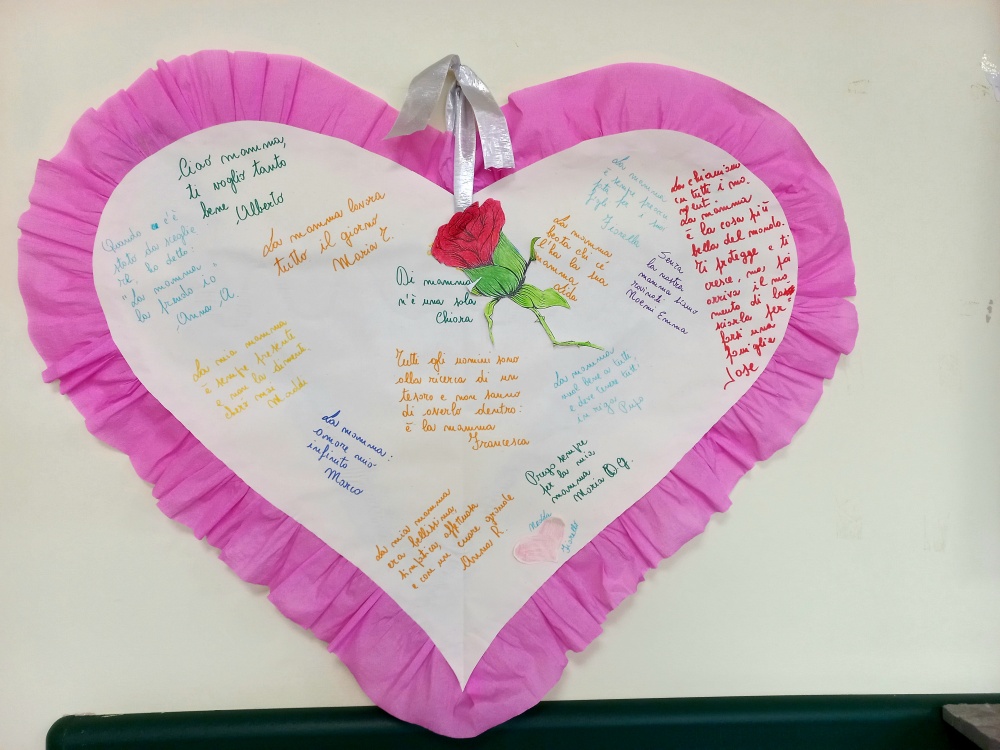 Ciao mamma,
ti voglio tanto
bene Alberto
Quando c'è
stato da scegliere
ho detto:
"La mamma
la prendo io"
Anna A.
La mamma lavora
tutto il giorno
Maria T.
La mamma
è sempre
Fiorella
La chiamiamo
in tutti i mo
menti.
La mamma
è la cosa più
bella del mondo.
Ti protegge e ti
cresce, ma poi
arriva il mo
mento di
per
farsi una
famiglia
Jose
La mamma
beato chi ce
l'ha la sua
anima
Senza
la nostra
mamma siamo
rovinati
Noemi Emma
Di mamma
n'è una sola
Chiara
La mia mamma
è sempre presente
e non la dimenti
cherò mai
Tutti gli uomini sono
alla ricerca di un
tesoro e non sanno
di averlo dentro:
è la mamma
Francesca
La mamma
vuol bene a tutti
e deve tenere tutti
in riga Pupo
La mamma:
amore mio
infinito
Marco
Prego sempre
per la mia
mamma
Maria D.G.
La mia mamma
era bellissima,
simpatica, affettuosa
e con un cuore grande
Anna R.